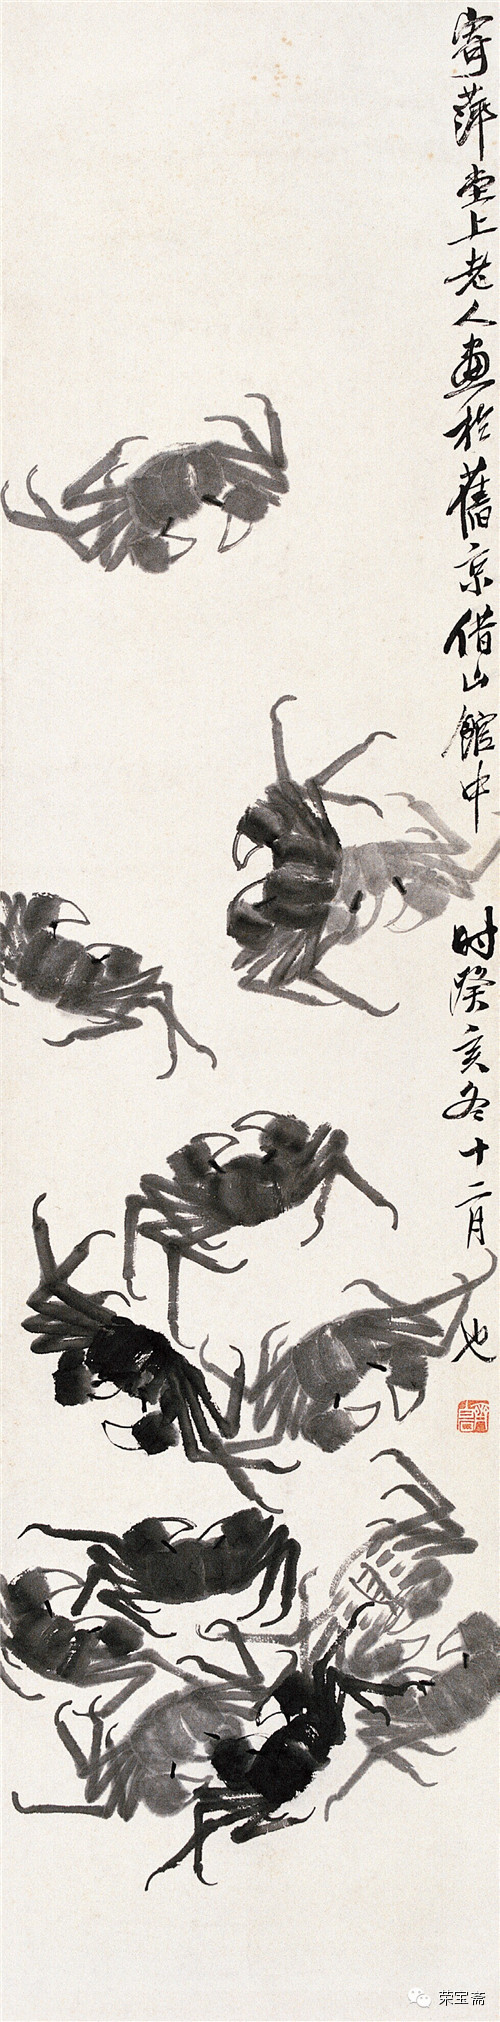 寄萍堂上老人畫於舊京借山館中
時癸亥冬十二月也
荣宝斋